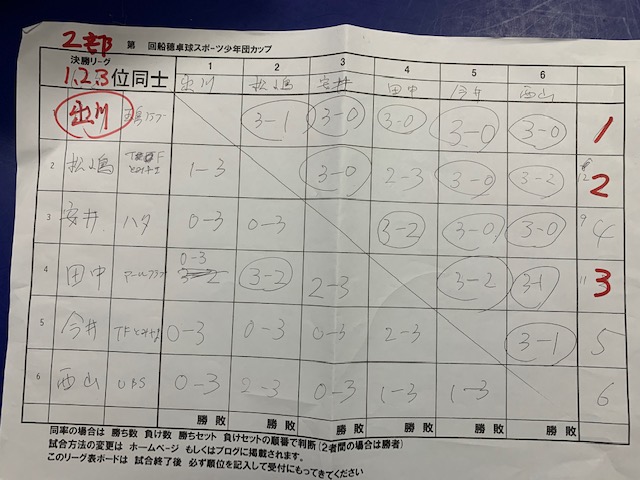 2部 第 回船穂卓球スポーツ少年団カップ
決勝リーグ
1,2,3位同士
1 2 3 4 5 6
出川 松嶋 安井 田中 今井 西山
出川 3-1 3-0 3-0 3-0 3-0 1
2 松嶋 1-3 3-0 2-3 3-0 3-2 12 2
3 安井 ハタ 0-3 0-3 3-2 3-0 3-0 9 4
4 田中 0-3 3-2 2-3 3-2 3-1 11 3
5 今井 0-3 0-3 0-3 2-3 3-1 5
6 西山 UBS 0-3 2-3 0-3 1-3 1-3 6
勝 敗 勝 敗 勝 敗 勝 敗 勝 敗 勝 敗
同率の場合は 勝ち数 負け数 勝ちセット 負けセットの順番で判断(2者間の場合は勝者)
試合方法の変更は ホームページ もしくはブログに掲載されます。
このリーグ表ボードは 試合終了後 必ず順位を記入して受付にもってきてください